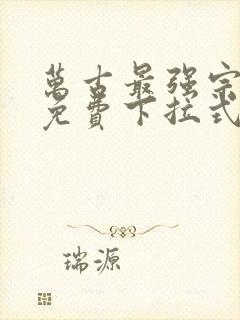 萬古最强宗
免費下拉式
瑞源